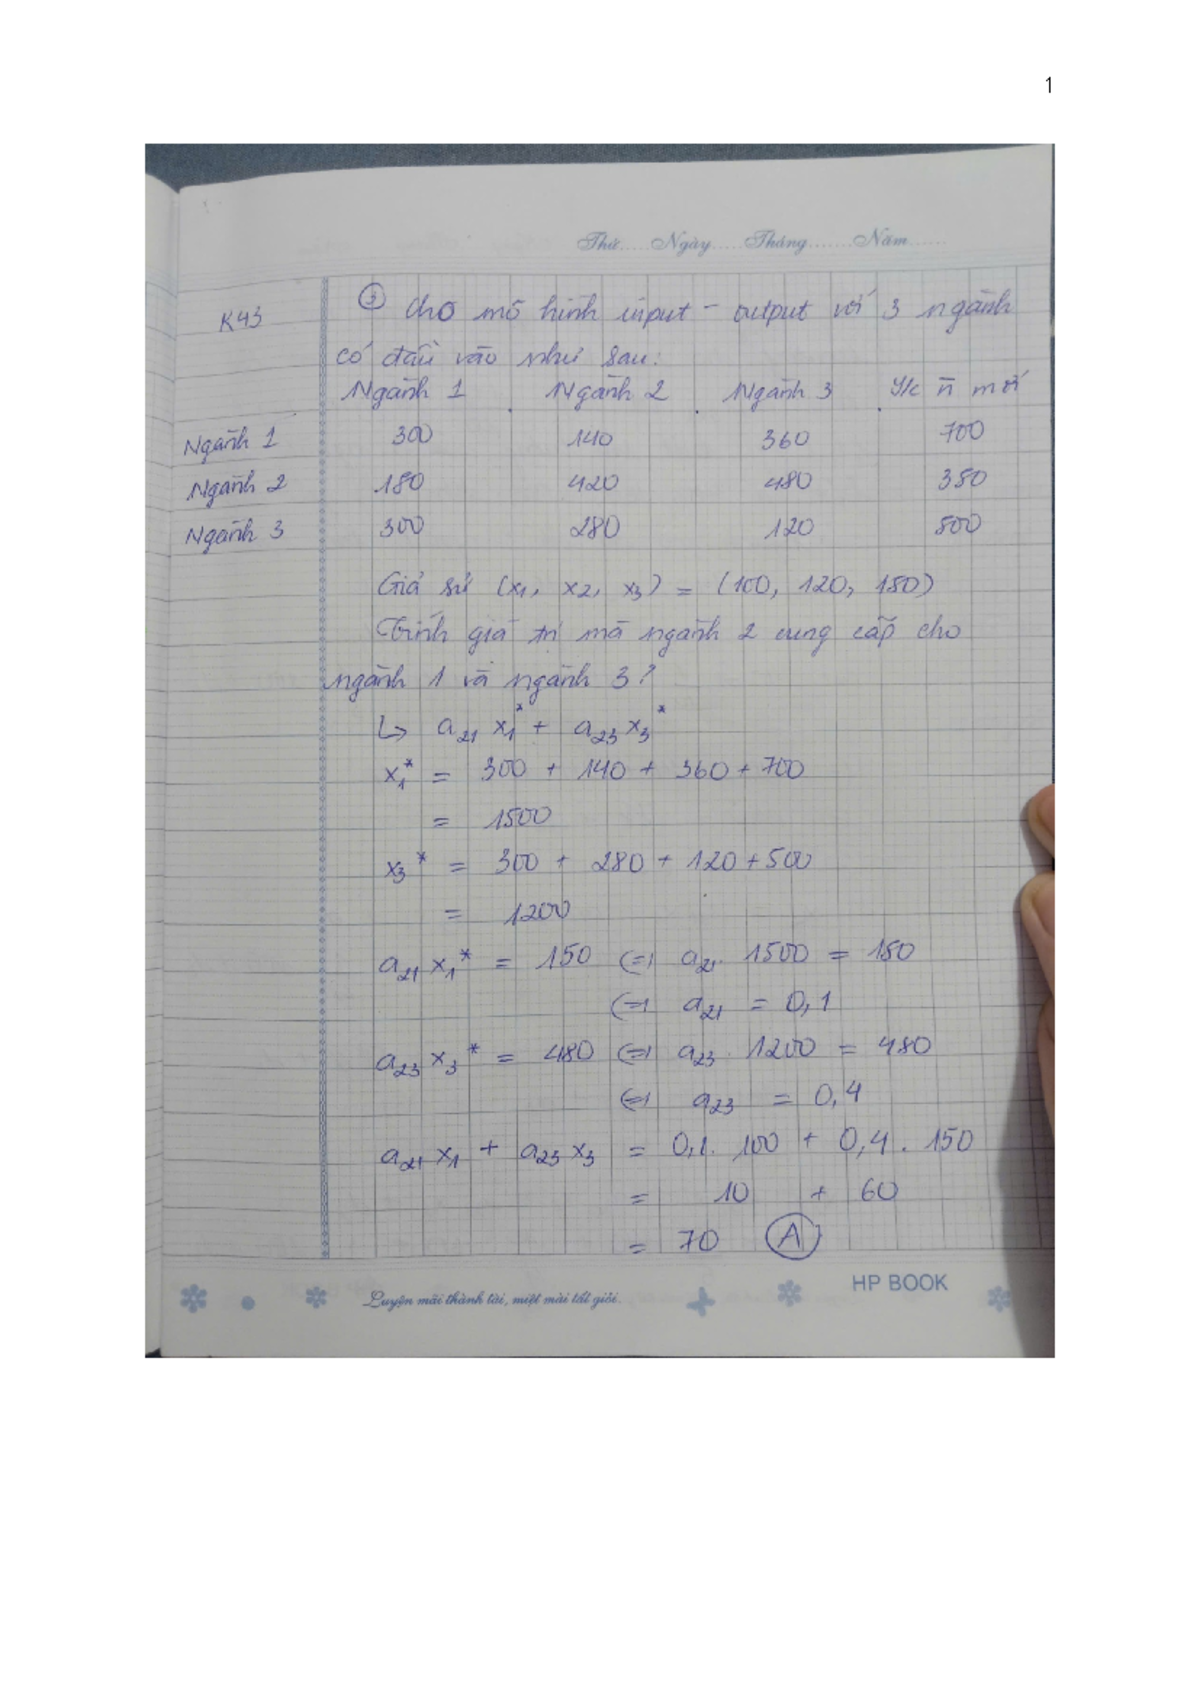 1
Thứ.....Ngày.....Tháng.......Năm......
K43
③ Cho mô hình input - output với 3 ngành
có đầu vào như sau:
Ngành 1 Ngành 2 Ngành 3 Y/c n̄ mới
Ngành 1 300 140 360 700
Ngành 2 150 420 480 350
Ngành 3 300 280 120 500
Giả sử (x1, x2, x3) = (100, 120, 150)
Tính giá trị mà ngành 2 cung cấp cho
ngành 1 và ngành 3?
↳ a21 x1* + a23 x3*
x1* = 300 + 140 + 360 + 700
= 1500
x3* = 300 + 280 + 120 + 500
= 1200
a21 x1* = 150 (=) a21. 1500 = 150
(=) a21 = 0,1
a23 x3* = 480 (=) a23. 1200 = 480
(=) a23 = 0,4
a21 x1 + a23 x3 = 0,1. 100 + 0,4. 150
= 10 + 60
= 70 Ⓐ
HP BOOK
Luyện mãi thành tài, miệt mài tất giỏi.